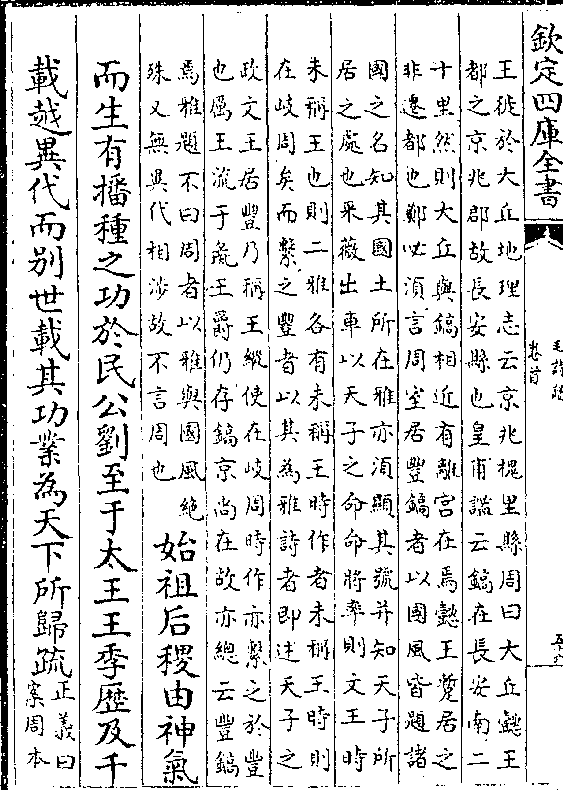 欽定四庫全書
毛詩疏
卷首
王徙於大丘地理志云京兆槐里縣周曰大丘懿王
都之京兆郡故長安縣也皇甫謐云鎬在長安南二
十里然則大丘與鎬相近有離宫在焉懿王蹔居之
非遷都也鄭必須言周室居豐鎬者以國風皆題諸
國之名知其國土所在雅亦須顯其號并知天子所
居之處也采薇出車以天子之命命將率則文王時
未稱王也則二雅各有未稱王時作者未稱王時則
在岐周矣而繫之豐者以其為雅詩者即述天子之
政文王居豐乃稱王縱使在岐周時作亦繫之於豐
也厲王流于彘王爵仍存鎬京尚在故亦總云豐鎬
焉雅題不曰周者以雅與國風絶
殊又無異代相涉故不言周也
始祖后稷由神氣
而生有播種之功於民公劉至于太王王季歴及千
載越異代而别世載其功業為天下所歸疏
正義曰
案周本